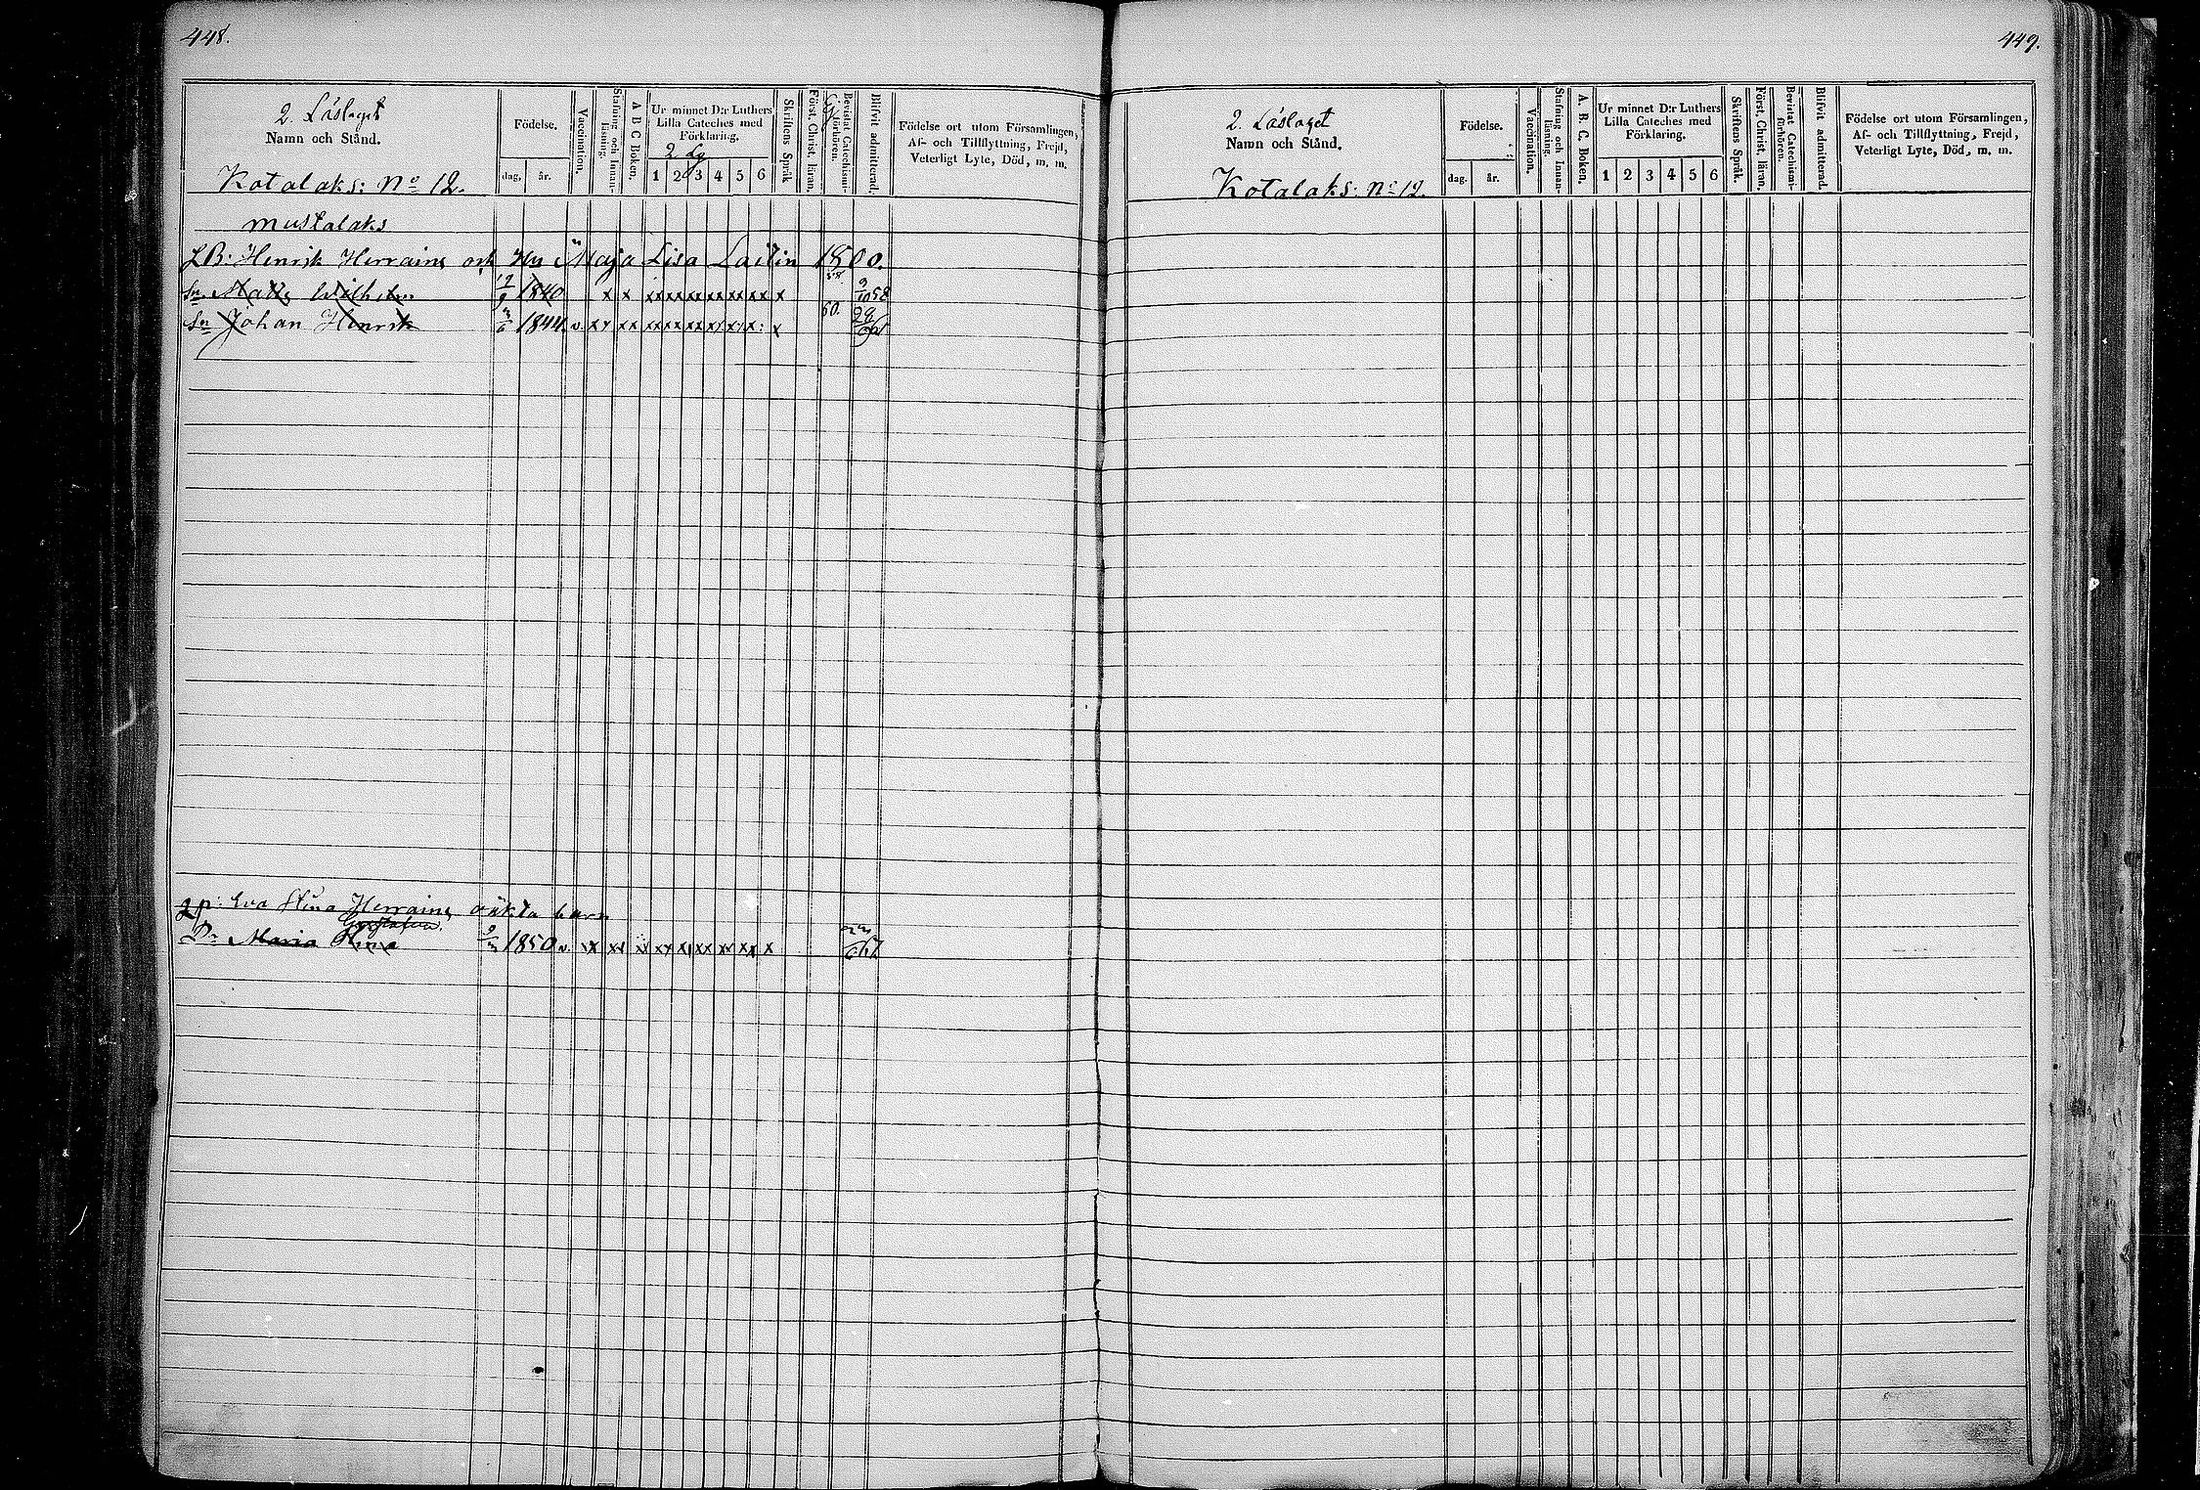 448.
2. Läslaget
Namn och Stånd.
Kotalaks: No 12.
Födelse.
dag. år.
Vaccination.
Stafning och Innanläsning.
A B C Boken.
Ur minnet D:r Luthers
Lilla Cateches med
Förklaring.
2. Lg
1 2 3 4 5 6
Skriftens Språk
Först. Christ. läran.
Bevistat Catechismiförhören.
Blifvit admitterad.
Födelse ort utom Församlingen,
Af- och Tillflyttning, Frejd,
Veterligt Lyte, Död, m. m.
Mustalaks
LB: Henrik Herraine och Hu Maja Lisa Laitin 1800.
Sn Matts Wilhelm 1840 x x xx xx xx xx xx xx x 58. 9/10 58
Sn Johan Henrik 1844 v. xx xx xx xx xx xx xx x: x 60. 29/6 61
Lp: Eva Stina Herraine oäkta barn
Gustafva
Dr Maria Stina 1850 v. x xx xx xx xx xx xx x 67
449.
2. Läslaget
Namn och Stånd.
Kotalaks: No 12.
Födelse.
dag. år.
Vaccination.
Stafning och Innanläsning.
A. B. C. Boken.
Ur minnet D:r Luthers
Lilla Cateches med
Förklaring.
1 2 3 4 5 6
Skriftens Språk.
Först. Christ. läran.
Bevistat Catechismiförhören.
Blifvit admitterad.
Födelse ort utom Församlingen,
Af- och Tillflyttning, Frejd,
Veterligt Lyte, Död, m. m.